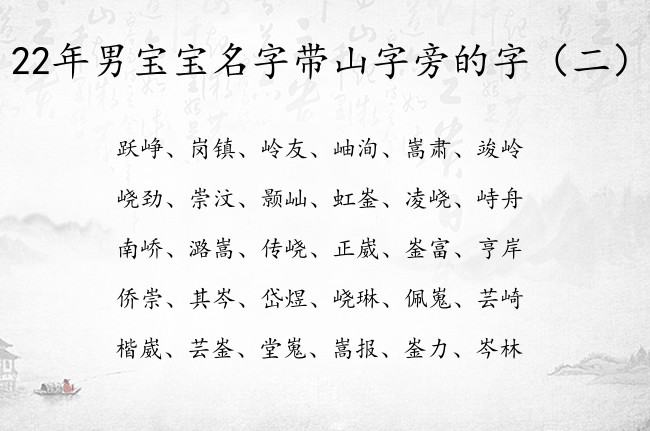 22年男宝宝名字带山字旁的字（二）
跃峥、岗镇、岭友、岫洵、嵩肃、竣岭
峣劲、崇汶、颢屾、虹崟、凌峣、峙舟
南峤、潞嵩、传峣、正崴、崟富、亨岸
侨崇、其岑、岱煜、峣琳、佩嵬、芸崎
楷崴、芸崟、堂嵬、嵩报、崟力、岑林